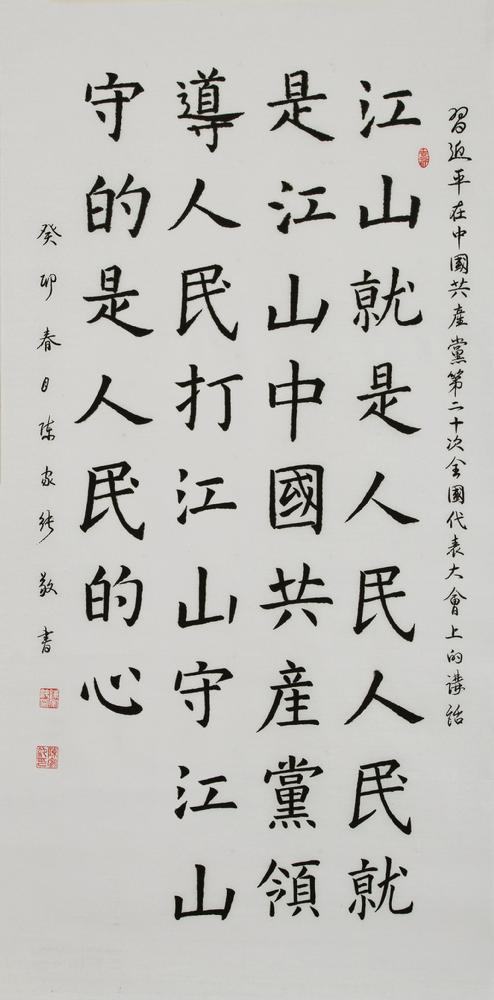 習近平在中國共産黨第二十次全國代表大會上的講話
江山就是人民人民就
是江山中國共産黨領
導人民打江山守江山
守的是人民的心
癸卯春日陳家敬書